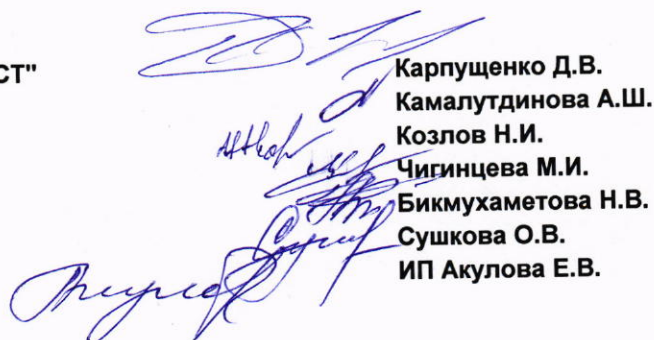 Карпущенко Д.В.
СТ"
Камалутдинова А.Ш.
Козлов Н.И.
Чигинцева М.И.
Бикмухаметова Н.В.
Сушкова О.В.
ИП Акулова Е.В.